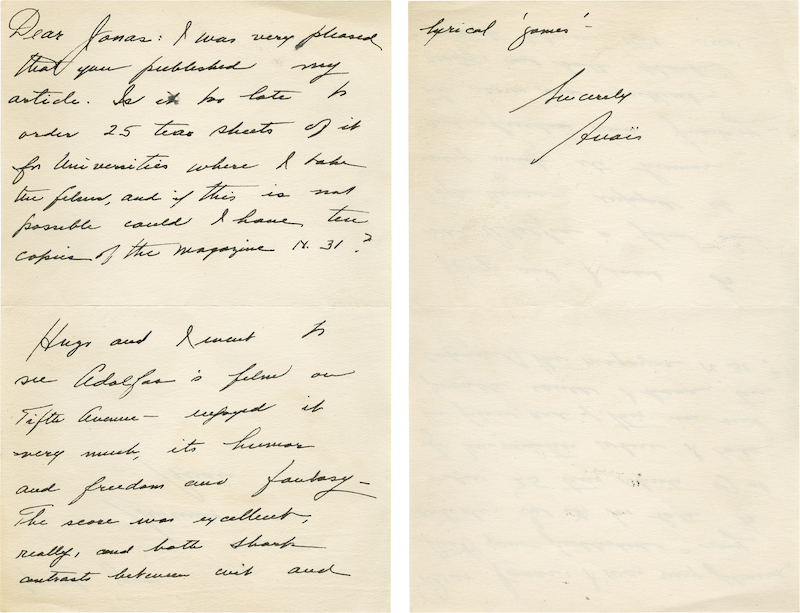 Dear Jonas: I was very pleased
that you published my
article. Is it too late to
order 25 tear sheets of it
for Universities where I take
the films, and if this is not
possible could I have ten
copies of the magazine N. 31?
Hugo and I went to
see Adolfas's film on
Fifth Avenue — enjoyed it
very much, its humor
and freedom and fantasy —
The score was excellent,
really, and both sharp
contrasts between wit and
lyrical 'games' —
Sincerely
Anaïs